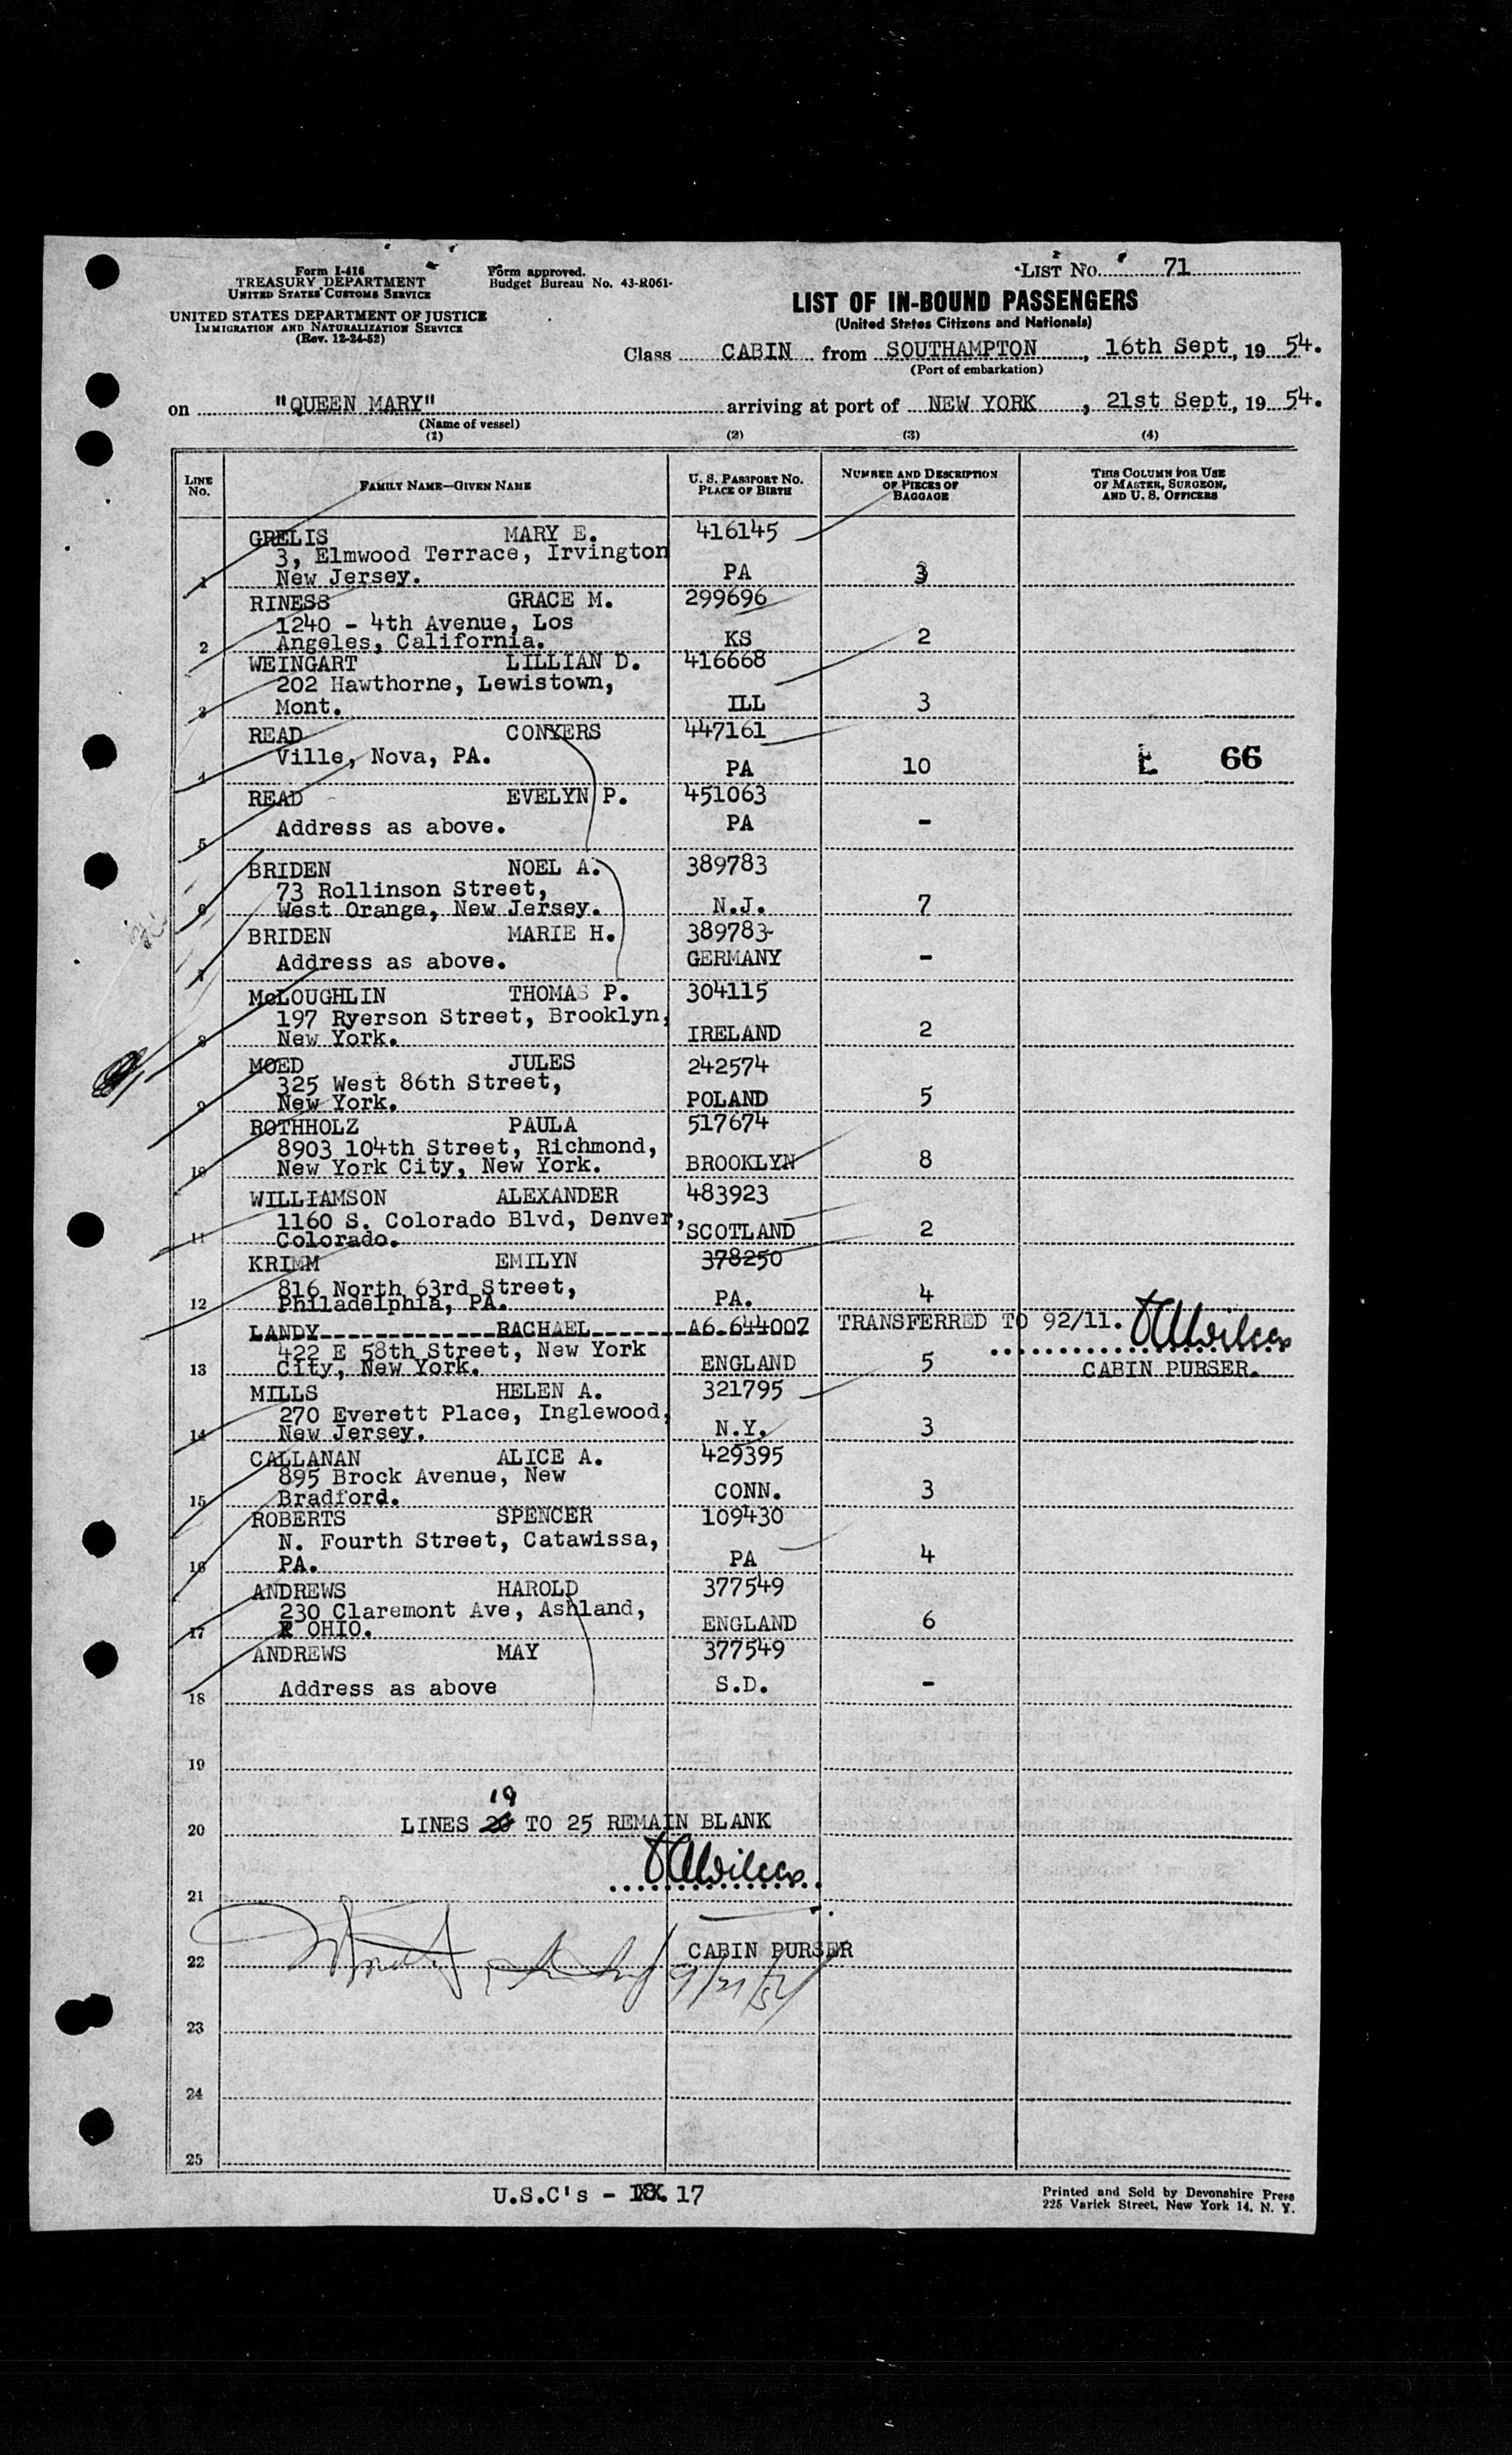 Form I-416
TREASURY DEPARTMENT
UNITED STATES CUSTOMS SERVICE
UNITED STATES DEPARTMENT OF JUSTICE
IMMIGRATION AND NATURALIZATION SERVICE
(Rev. 12-24-52)
Form approved.
Budget Bureau No. 43-R061-
LIST NO. 71
LIST OF IN-BOUND PASSENGERS
(United States Citizens and Nationals)
Class CABIN from SOUTHAMPTON, 16th Sept, 19 54.
(Port of embarkation)
on "QUEEN MARY" arriving at port of NEW YORK, 21st Sept, 19 54.
(Name of vessel)
(1) (2) (3) (4)
LINE NO. FAMILY NAME—GIVEN NAME U. S. PASSPORT NO. PLACE OF BIRTH NUMBER AND DESCRIPTION OF PIECES OF BAGGAGE THIS COLUMN FOR USE OF MASTER, SURGEON, AND U. S. OFFICERS
GRELIS MARY E. 416145
3, Elmwood Terrace, Irvington
1 New Jersey. PA 3
RINESS GRACE M. 299696
1240 - 4th Avenue, Los
2 Angeles, California. KS 2
WEINGART LILLIAN D. 416668
202 Hawthorne, Lewistown,
3 Mont. ILL 3
READ CONYERS 447161
Ville, Nova, PA.
4 PA 10 E 66
READ EVELYN P. 451063
5 Address as above. PA -
BRIDEN NOEL A. 389783
73 Rollinson Street,
6 West Orange, New Jersey. N.J. 7
BRIDEN MARIE H. 389783
7 Address as above. GERMANY -
McLOUGHLIN THOMAS P. 304115
197 Ryerson Street, Brooklyn,
8 New York. IRELAND 2
MOED JULES 242574
325 West 86th Street,
9 New York. POLAND 5
ROTHHOLZ PAULA 517674
8903 104th Street, Richmond,
10 New York City, New York. BROOKLYN 8
WILLIAMSON ALEXANDER 483923
1160 S. Colorado Blvd, Denver,
11 Colorado. SCOTLAND 2
KRIMM EMILYN 378250
816 North 63rd Street,
12 Philadelphia, PA. PA. 4
LANDY RACHAEL A6 644007 TRANSFERRED TO 92/11.
422 E 58th Street, New York
13 City, New York. ENGLAND 5 CABIN PURSER.
MILLS HELEN A. 321795
270 Everett Place, Inglewood,
14 New Jersey. N.Y. 3
CALLANAN ALICE A. 429395
895 Brock Avenue, New
15 Bradford. CONN. 3
ROBERTS SPENCER 109430
N. Fourth Street, Catawissa,
16 PA. PA 4
ANDREWS HAROLD 377549
230 Claremont Ave, Ashland,
17 OHIO. ENGLAND 6
ANDREWS MAY 377549
18 Address as above S.D. -
19
19
20 LINES 20 TO 25 REMAIN BLANK
21
22 CABIN PURSER
9/21/54
23
24
25
U.S.C's - 18 17
Printed and Sold by Devonshire Press
225 Varick Street, New York 14, N. Y.